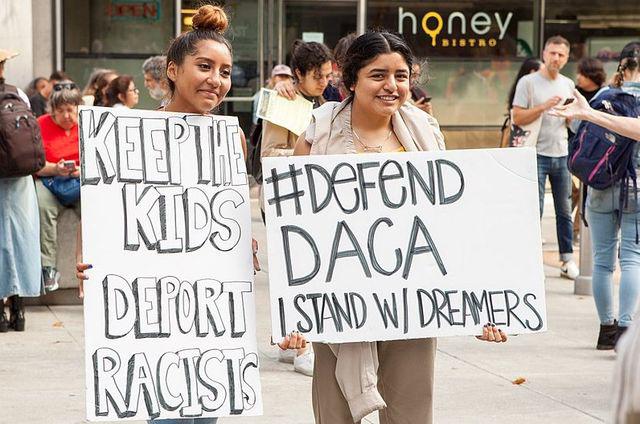 OPEN
honey
BISTRO
KEEP THE
KIDS
DEPORT
RACISTS
#DEFEND
DACA
I STAND W/ DREAMERS